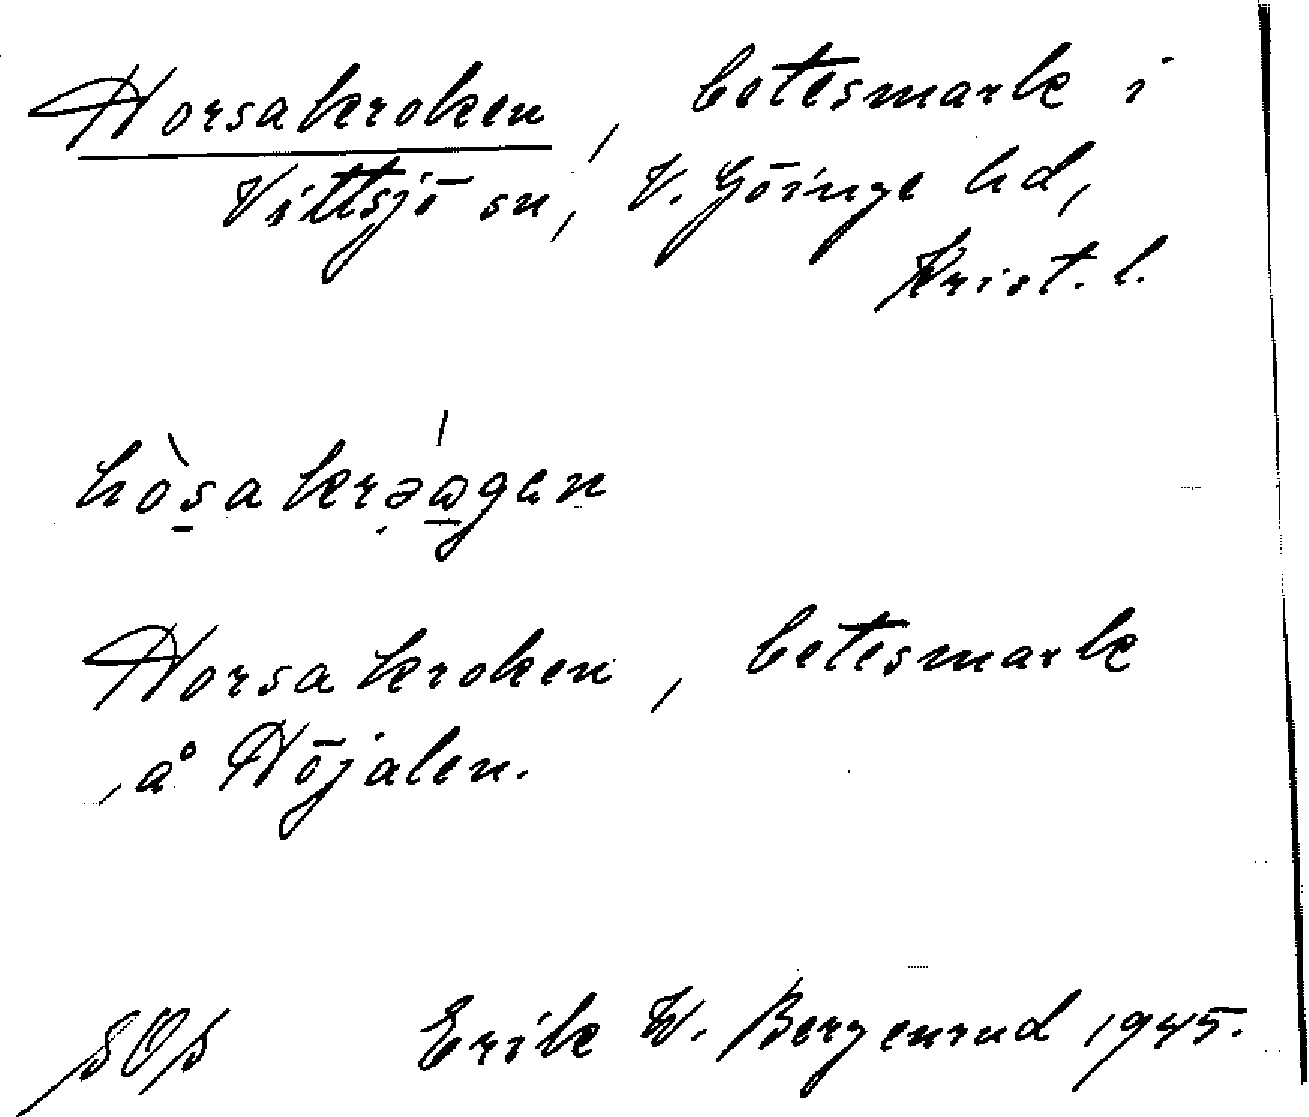 Horsakroken, betesmark i
Vittsjö sn, V. Göinge hd,
Krist. l.
Horsakroken, betesmark
å Höjalen.
Erik W. Bergenrud 1945.